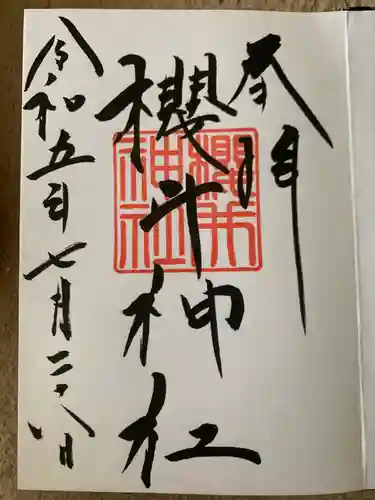 奉拝
櫻井神社
令和五年七月二十八日
櫻井
神社